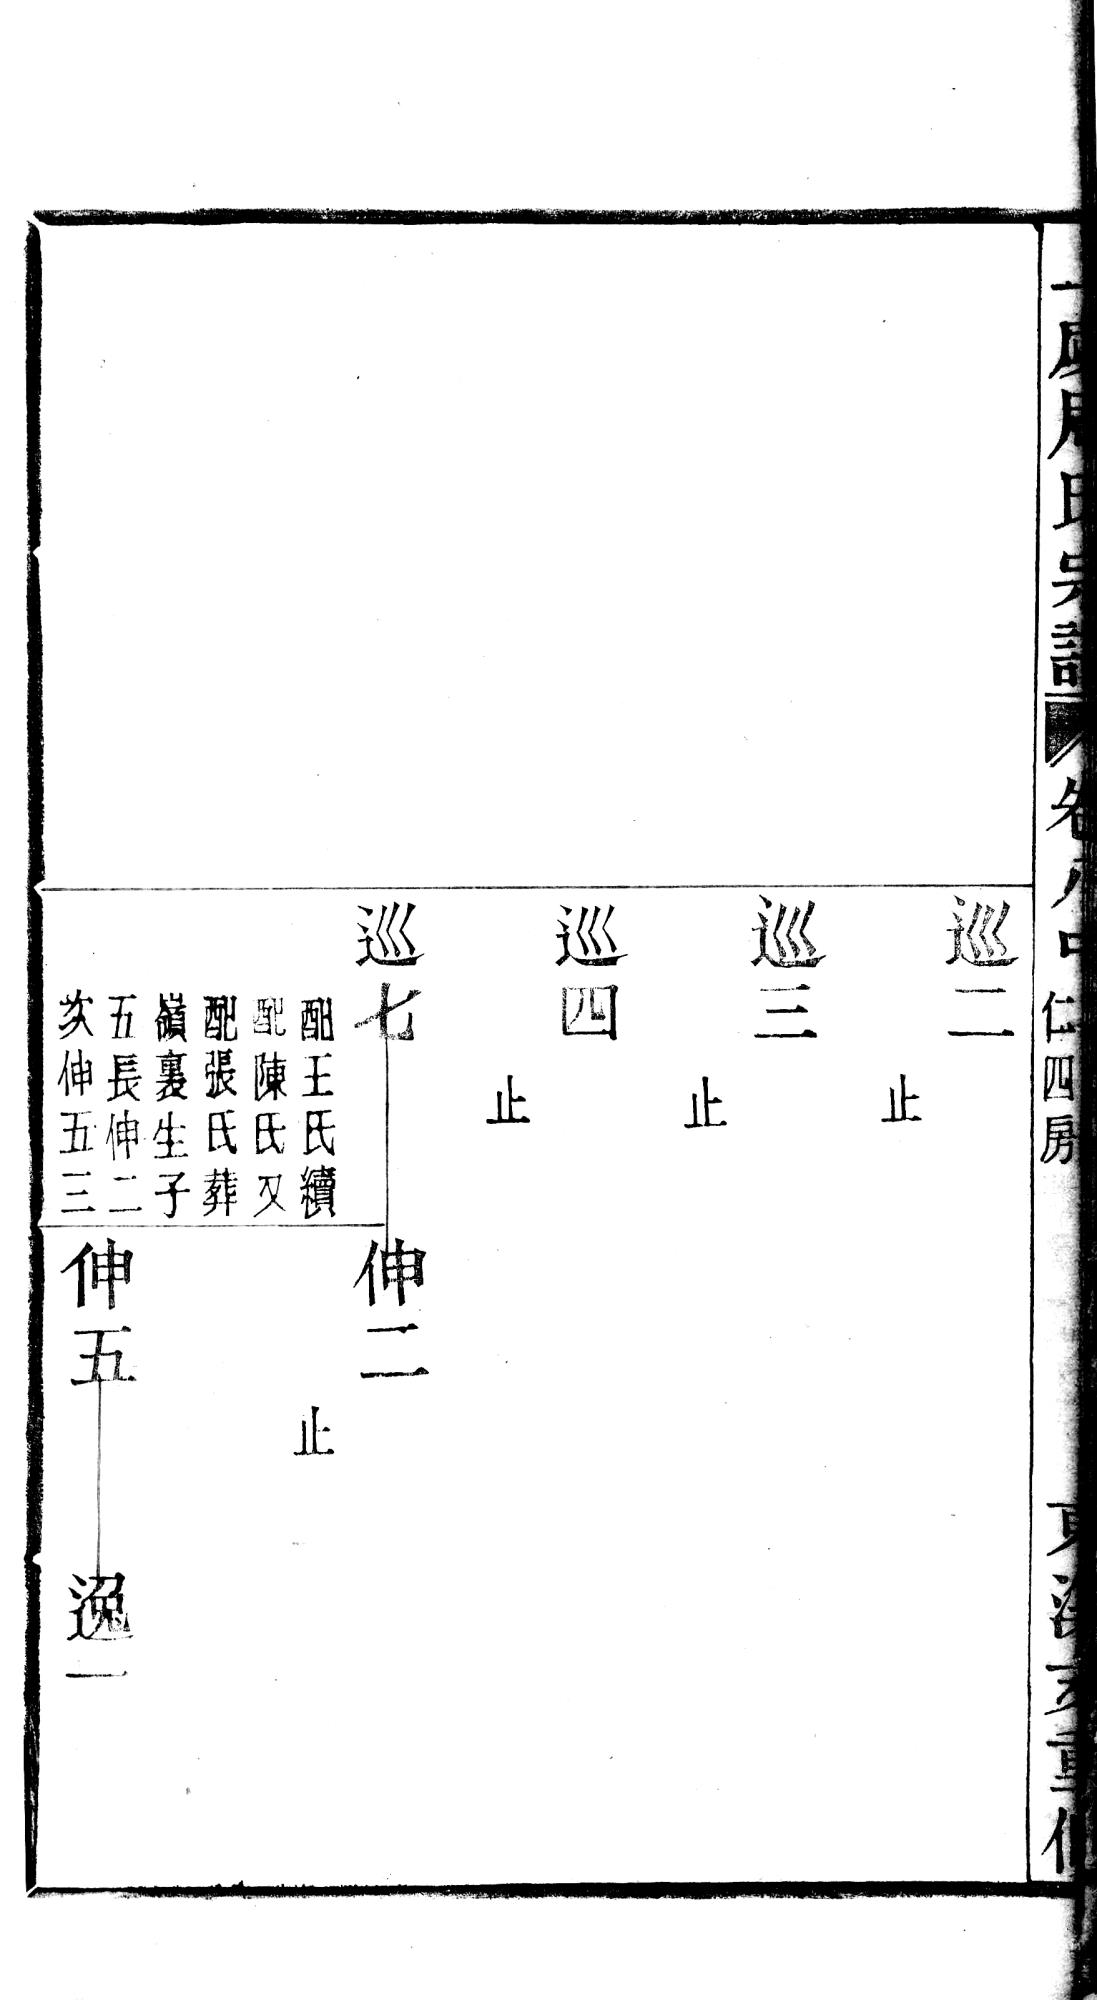 氏宗譜
卷八中
仁四房
重修
巡二
止
巡三
止
巡四
止
巡七
配王氏續
配陳氏又
配張氏葬
嶺裏生子
五長伸二
次伸五三
伸二
止
伸五
逸一